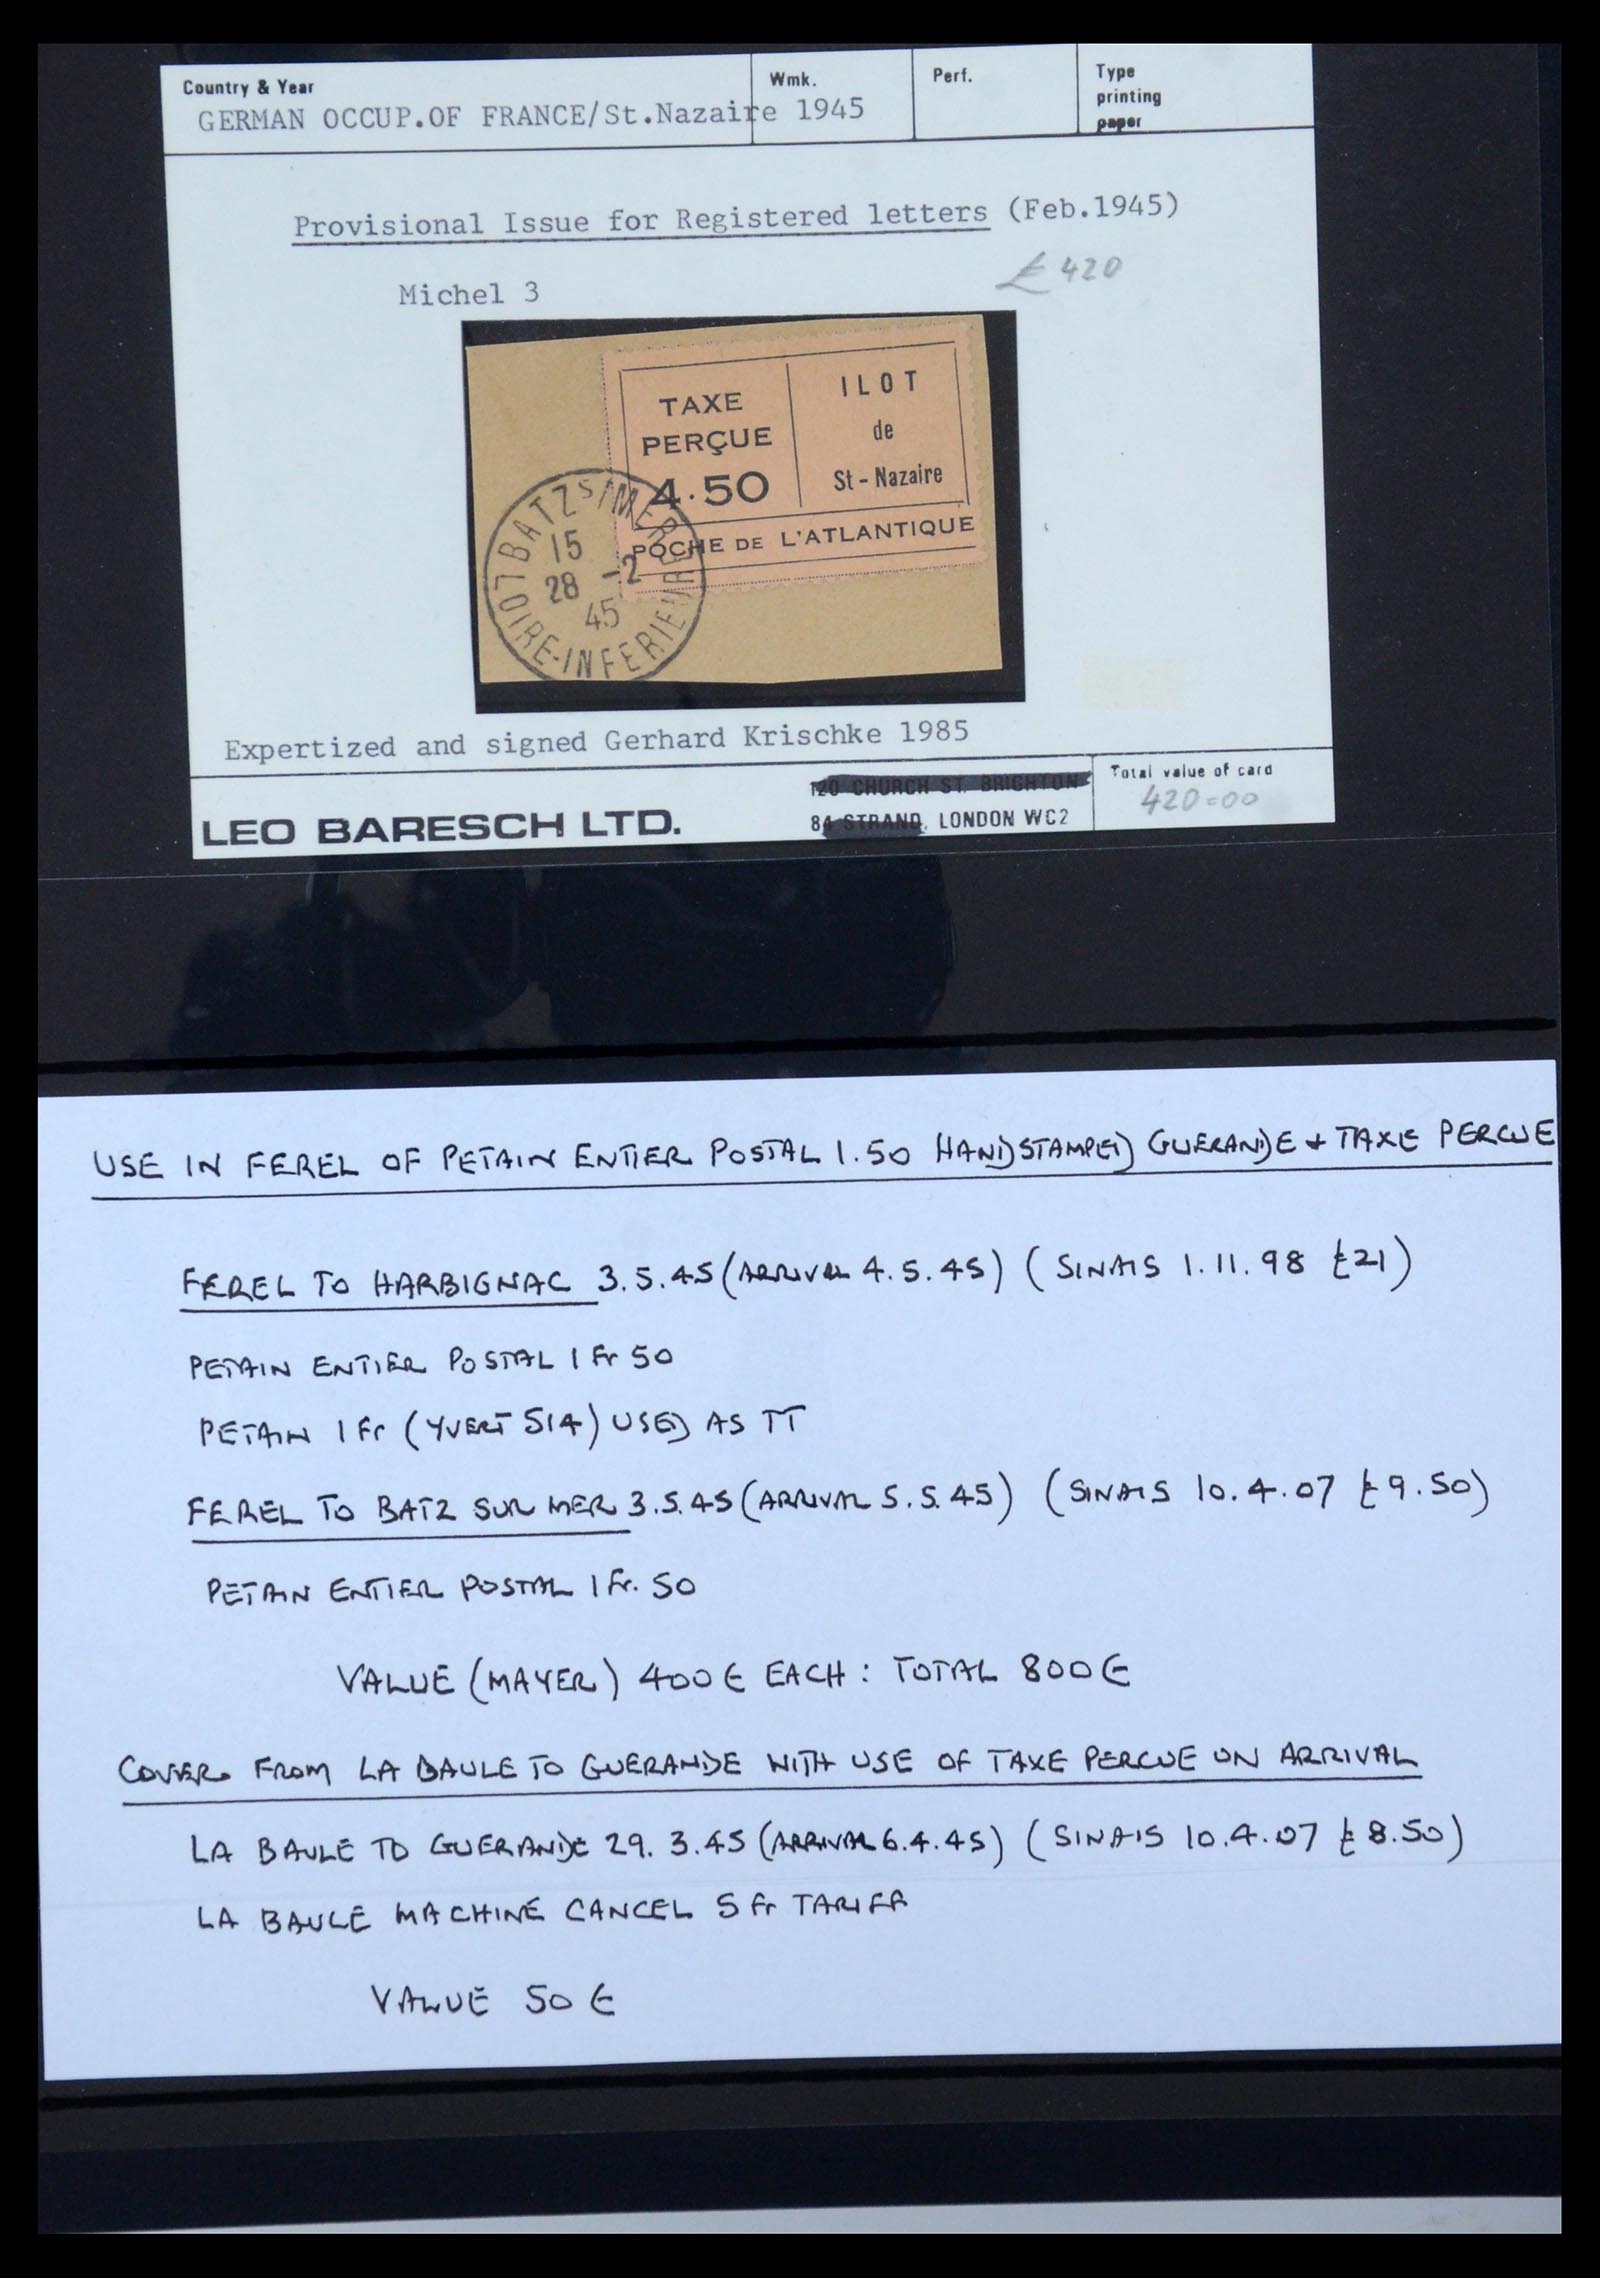 Country & Year
Wmk.
Perf.
Type
printing
paper
GERMAN OCCUP.OF FRANCE/St.Nazaire 1945
Provisional Issue for Registered letters (Feb.1945)
£420
Michel 3
TAXE
PERÇUE
4.50
ILOT
de
St-Nazaire
POCHE DE L'ATLANTIQUE
BATZ S/MER
15
28 -2
45
LOIRE-INFERIEURE
Expertized and signed Gerhard Krischke 1985
LEO BARESCH LTD.
120 CHURCH ST. BRIGHTON
84 STRAND, LONDON WC2
Total value of card
420=00
USE IN FEREL OF PETAIN ENTIER POSTAL 1.50 HANDSTAMPED GUERANDE + TAXE PERCUE
FEREL TO HARBIGNAC 3.5.45 (ARRIVAL 4.5.45) (SINAIS 1.11.98 £21)
PETAIN ENTIER POSTAL 1 Fr 50
PETAIN 1 Fr (YVERT 514) USED AS TT
FEREL TO BATZ SUR MER 3.5.45 (ARRIVAL 5.5.45) (SINAIS 10.4.07 £9.50)
PETAIN ENTIER POSTAL 1 Fr. 50
VALUE (MAYER) 400€ EACH: TOTAL 800€
COVER FROM LA BAULE TO GUERANDE WITH USE OF TAXE PERCUE ON ARRIVAL
LA BAULE TO GUERANDE 29.3.45 (ARRIVAL 6.4.45) (SINAIS 10.4.07 £8.50)
LA BAULE MACHINE CANCEL 5 Fr TARIFF
VALUE 50€